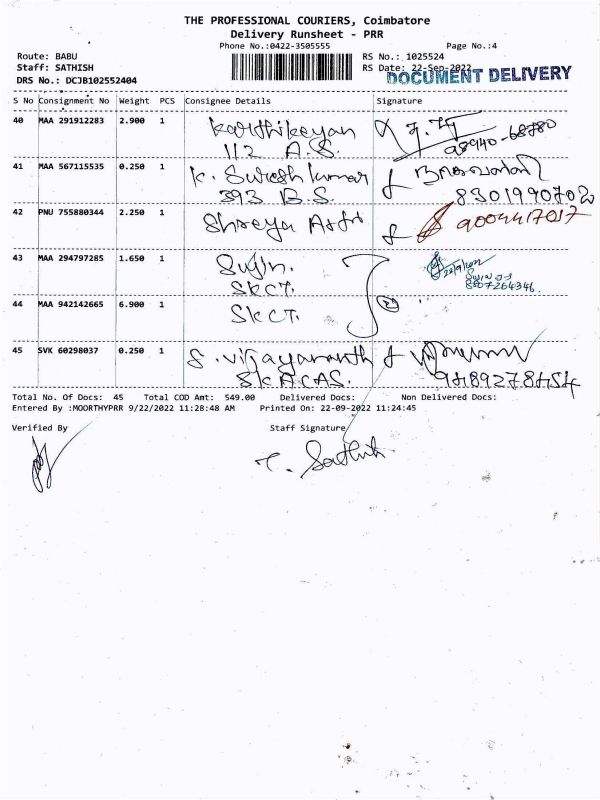 THE PROFESSIONAL COURIERS, Coimbatore
Delivery Runsheet - PRR
Phone No.:0422-3505555 Page No.:4
Route: BABU RS No.: 1025524
Staff: SATHISH RS Date: 22-Sep-2022
DRS No.: DCJB102552404 DOCUMENT DELIVERY
S No Consignment No Weight PCS Consignee Details Signature
40 MAA 291912283 2.900 1 Karthikeyan
112 A.S. 98940-68780
41 MAA 567115535 0.250 1 K. Sureshkumar
393 B.S. 8301990702
42 PNU 755880344 2.250 1 Shreya 9004417017
43 MAA 294797285 1.650 1 Sujin. 22/9/2022
SKCT. 8507264346
44 MAA 942142665 6.900 1 SKCT. 2
45 SVK 60298037 0.250 1 S. Vijayananth
SKACAS. 9489278454
Total No. Of Docs: 45 Total COD Amt: 549.00 Delivered Docs: Non Delivered Docs:
Entered By :MOORTHYPRR 9/22/2022 11:28:48 AM Printed On: 22-09-2022 11:24:45
Verified By Staff Signature
T. Sathish